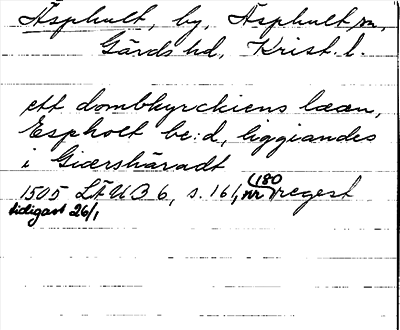 Äsphult, by, Äsphult sn,
Gärds hd, Krist. l.
ett dombkyrckiens læen,
Espholt be:d, liggiandes
i Giærshäradt
1505 LÄUB 6, s. 161, nr (180 regest
tidigast 26/1